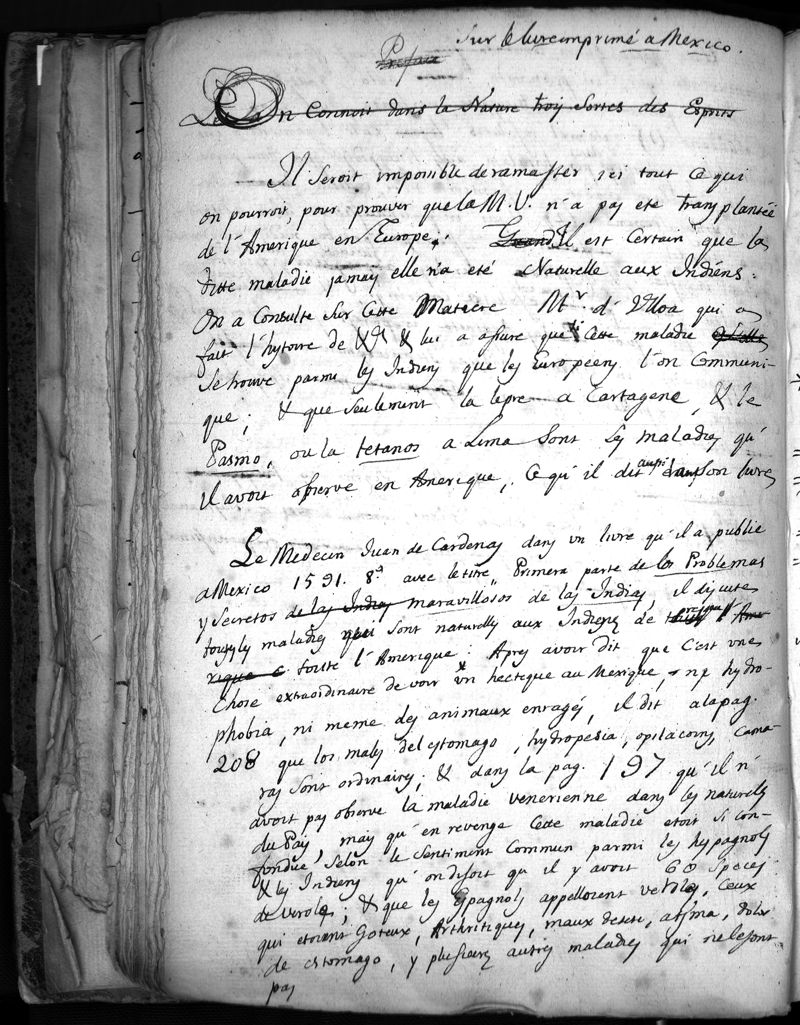 Sur le livre imprimé a Mexico.
Preface
On Connoit dans la Nature troy Sortes des Esprits
Il seroit impossible de ramasser ici tout ce qui
on pourroit, pour prouver que la M. V. n'a pas eté transplantée
de l'Amerique en Europe. Quand Il est Certain que la
ditte maladie jamais elle n'a eté Naturelle aux Indiens.
On a Consulte Sur Cette Matiere Mr d'Ulloa qui a
fait l'hystoire de & lui a assure que Cette maladie
Se trouve parmi les Indiens que les Europeens l'on Communi-
que; & que seulement la lepre a Cartagene, & le
Pasmo, ou la tetanos a Lima Sont les maladies qu'
il avoit observe en Amerique, Ce qu'il dit aussi dans son livre
Le Medecin Juan de Cardenas dans un livre qu'il a publie
a Mexico 1591. 8º avec le titre, Primera parte de los Problemas
y Secretos de las Indias maravillosos de las Indias, il discute
touttes maladies qui sont naturelles aux Indiens de toute l'Ame-
rique toutte l'Amerique: Apres avoir dit que C'est une
Chose extraordinaire de voir un hecteque au Mexique, ni hydro-
phobia, ni meme des animaux enragés, il dit a la pag.
208 que los males del estomago, hydropesia, opilacions, cama-
ras Sont ordinaires; & dans la pag. 197 qu'il n'
avoit pas observe la maladie venerienne dans les naturels
du Pais, mais qu'en revenge Cette maladie etoit si con-
fondue, selon le sentiment Commun parmi les hespagnols
& les Indiens qu'on disoit qu'il y avoit 60 speces
de veroles; & que les Espagnols appelloient verole, Ceux
qui etoient Goteux, Arthritiques, maux de tete, asma, dolor
de estomago, y plusieurs autres maladies qui ne le sont
pas